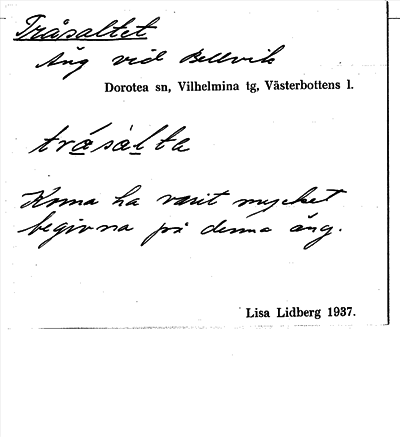 Tråsaltet
Äng vid Bellvik
Dorotea sn, Vilhelmina tg, Västerbottens l.
tråsàlta
Korna ha varit mycket
begivna på denna äng.
Lisa Lidberg 1937.